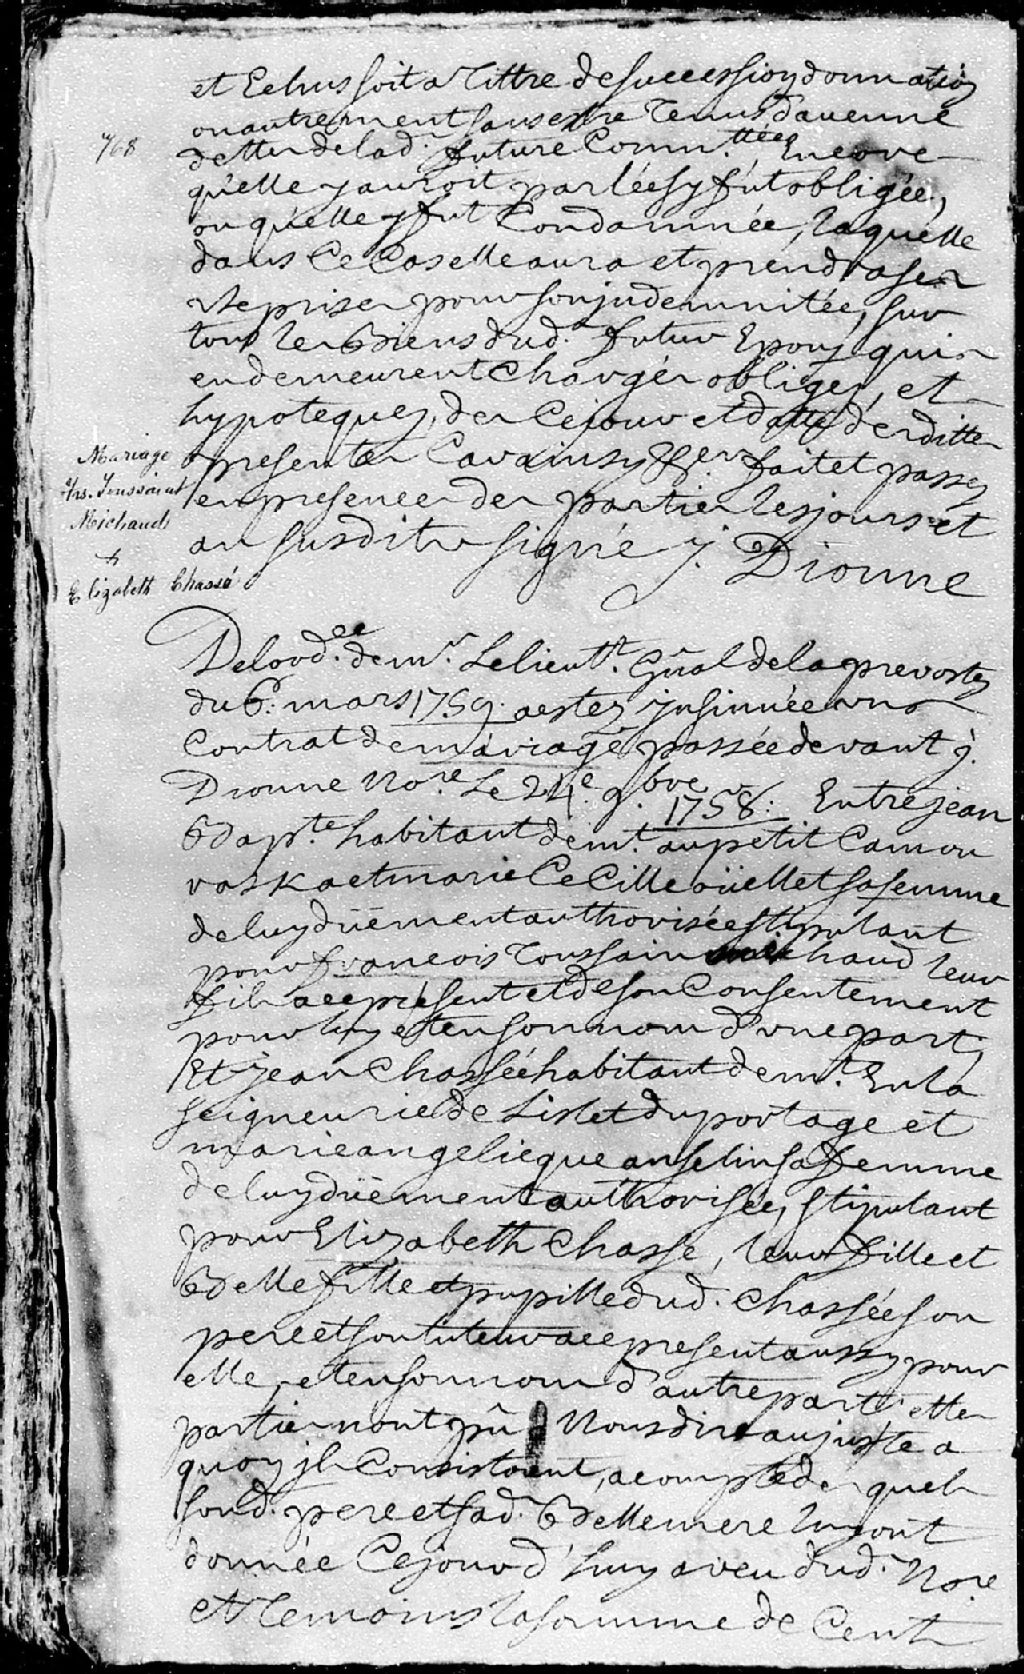 et Echus soit a Tittre de succession donnation
ou autrement sans estre Tenus d'aucune
768
dette de lad. future Comm.ttée Encore
qu'elle y auroit parlée sy fut obligée,
ou qu'elle y fut Condamnée, laquelle
dans Ce Cas elle aura et prendra ses
Reprises pour son indemnitée, sur
tous les Biens dud. futur Epoux qui
en demeurent Chargés obligés, et
hypotequez, des Ce jour et datte desdittes
Mariage
frs. Toussaint
Michaud
&
Elizabeth Chassé
presentes Car ainsy &c. fait et passez
en presence des parties les jours et
an susdits signé J. Dionne
De lord.ce de mr. Le lieutt. Gñal de la prevostez
du 6. mars 1759. a estez insinuée un
Contrat de mariage passée devant J.
Dionne No.re Le 24.e 9.bre 1758. Entre jean
Bapt.te habitant demt. au petit Camou
raska et marie Cecille oüellet sa femme
de luy düement authorisée stipulant
pour francois Toussain michaud leur
fils a ce présent et de son Consentement
pour luy et en son nom d'une part,
Et jean Chassée habitant demt. En la
seigneurie de Lislet du portage et
marie angelicque anselin sa femme
de luy düement authorisée, stipulant
pour Elizabeth Chasse, leur fille et
Belle fille et pupille dud. Chassée son
pere et son tuteur a ce present aussy pour
elle, et en son nom d'autre part. et les
parties n'ont pû Nous dire au juste a
quoy ils Consistoient, a compte des quels
sond. pere et sad. Belle mere luy ont
donnée Ce jour d'huy a veu dud. No.re
et Temoins la somme de Cent